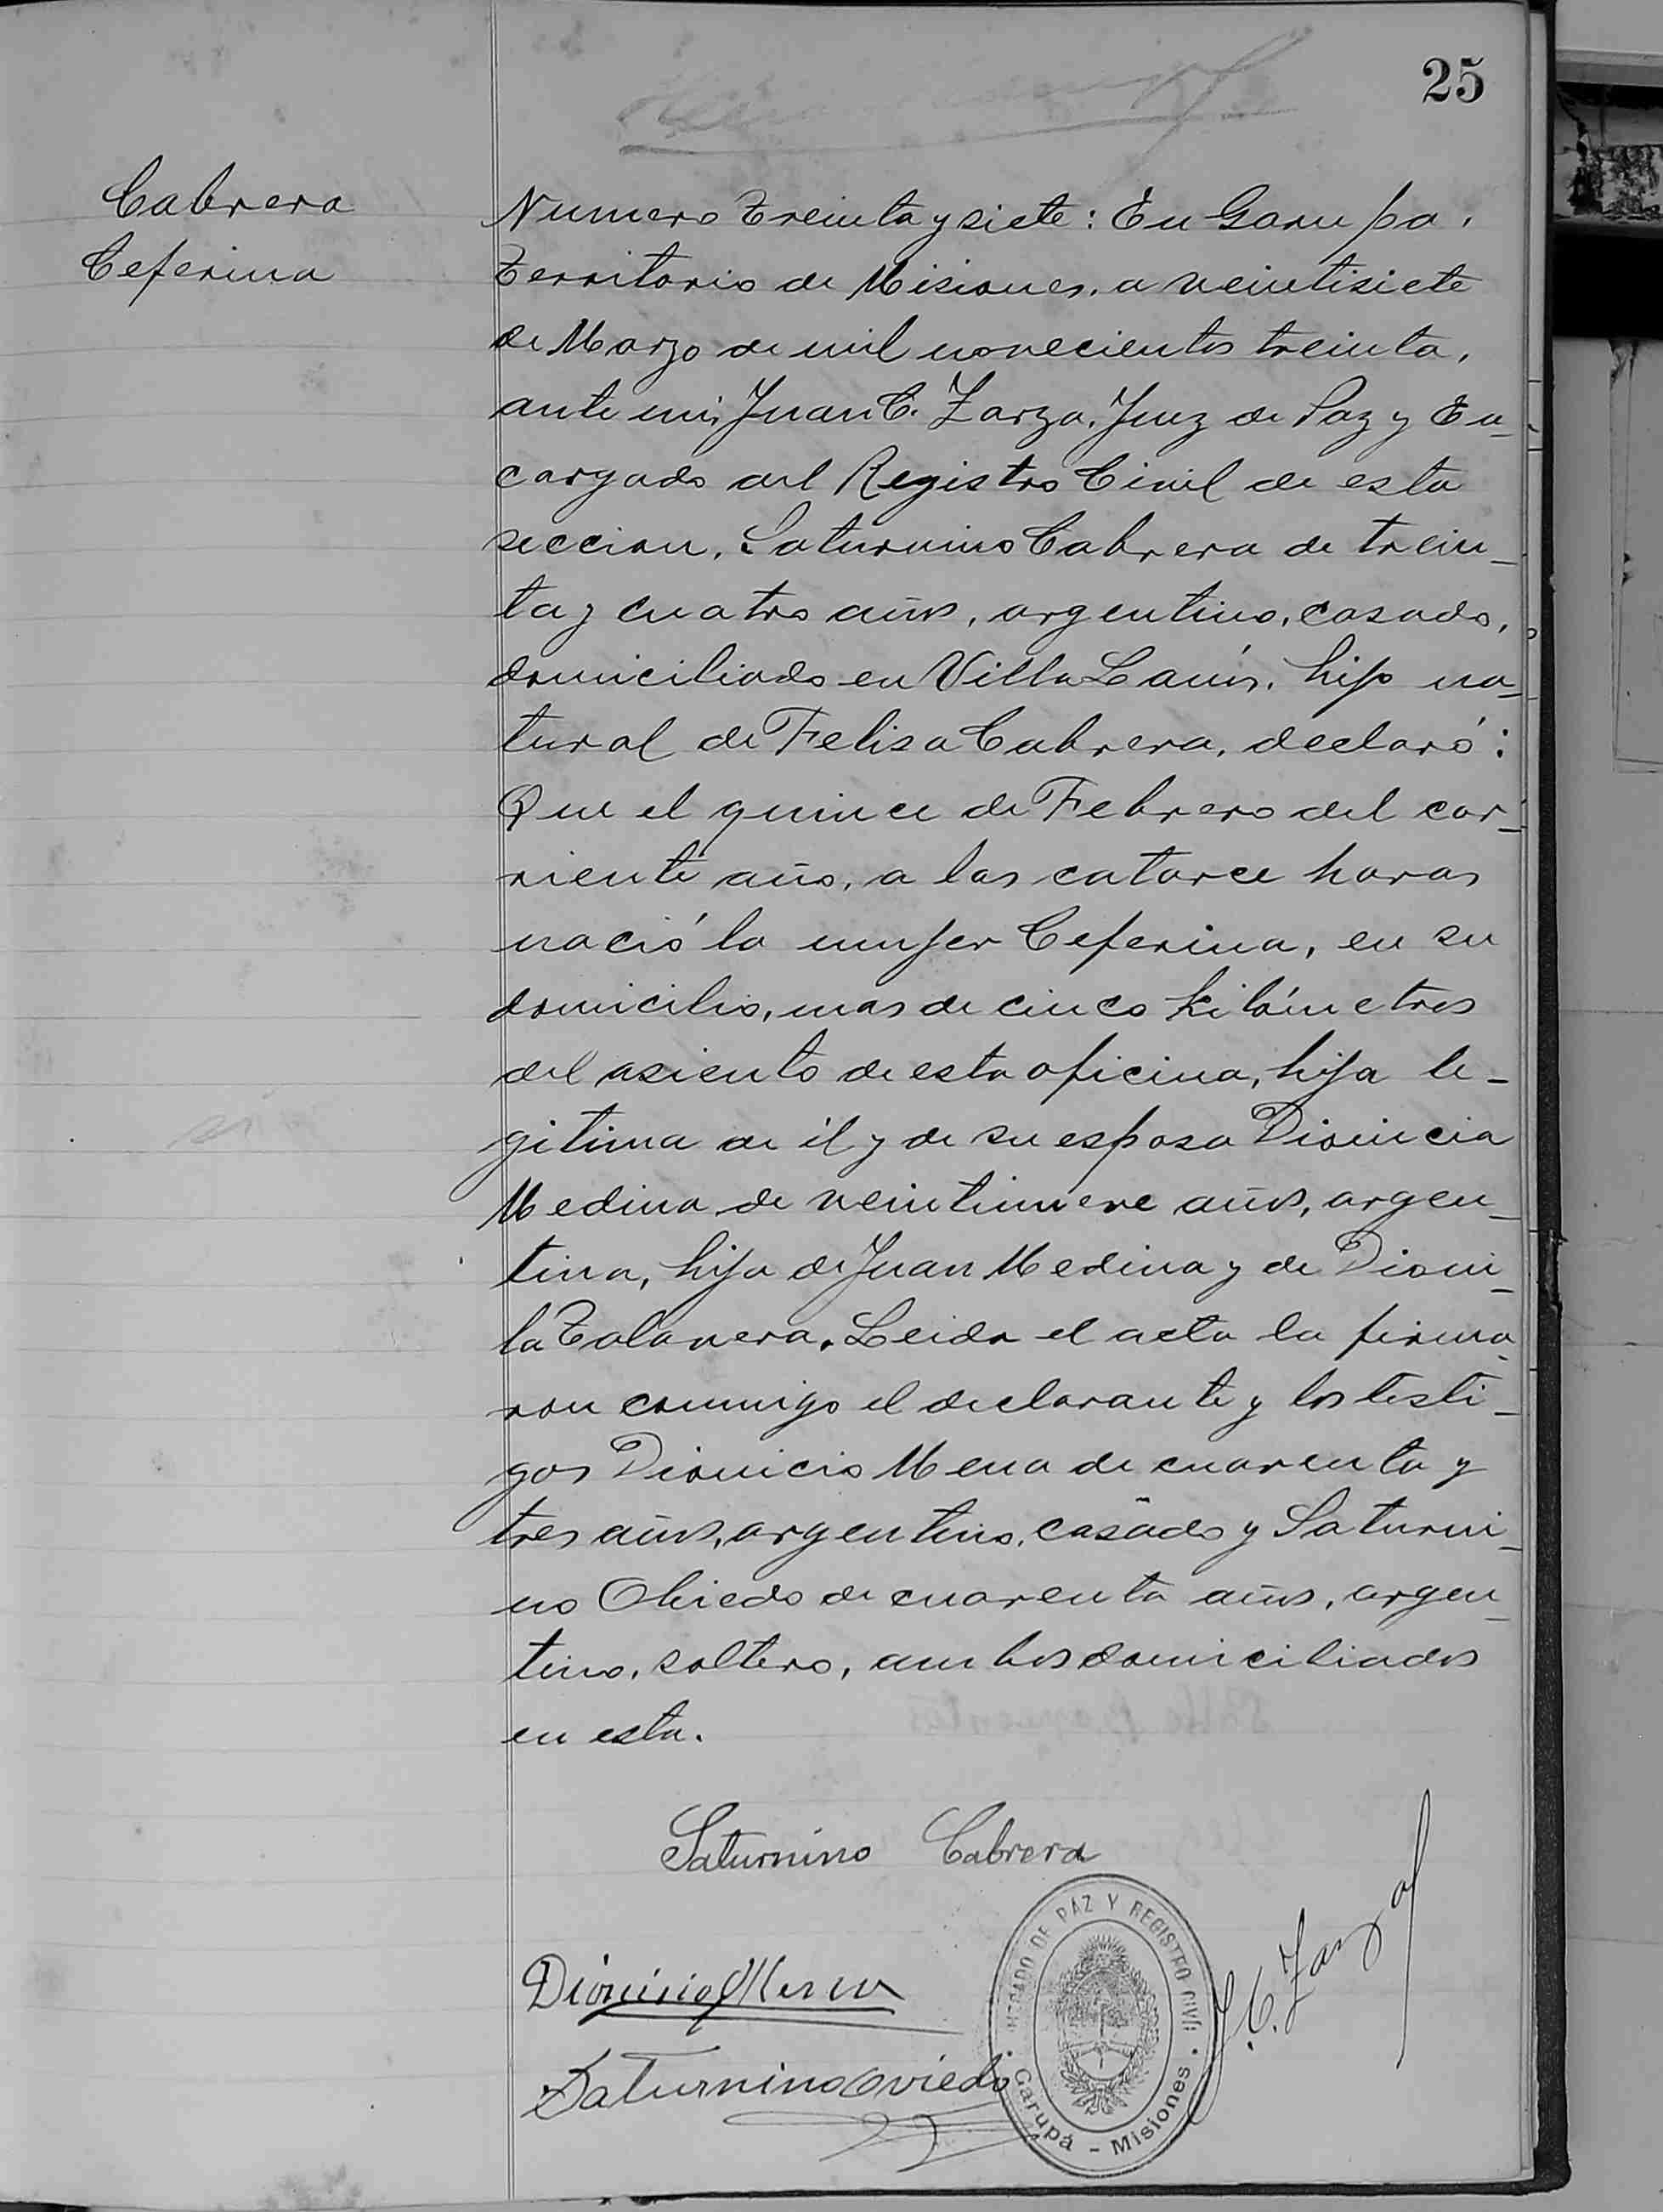 25
Cabrera
Ceferina
Numero Treinta y siete: En Garupa,
Territorio de Misiones, a veintisiete
de Marzo de mil novecientos treinta,
ante mi, Juan C. Zarza, Juez de Paz y En_
cargado del Registro Civil de esta
seccion, Saturnino Cabrera de trein_
ta y cuatro años, argentino, casado,
domiciliado en Villa Lanús, hijo na_
tural de Felisa Cabrera, declaró:
Que el quince de Febrero del cor_
riente año, a las catorce horas
nació la mujer Ceferina, en su
domicilio, mas de cinco kilómetros
del asiento de esta oficina, hija le_
gitima de él y de su esposa Dionicia
Medina de veintinueve años, argen_
tina, hija de Juan Medina y de Dioni_
la Talavera. Leida el acta la firma_
ron conmigo el declarante y los testi_
gos Dionicio Mena de cuarenta y
tres años, argentino, casado y Saturni_
no Obiedo de cuarenta años, argen_
tino, soltero, ambos domiciliados
en esta.
Saturnino Cabrera
Dionicio Mena
Saturnino Oviedo
J. C. Zarza
JUZGADO DE PAZ Y REGISTRO CIVIL
Garupá - Misiones